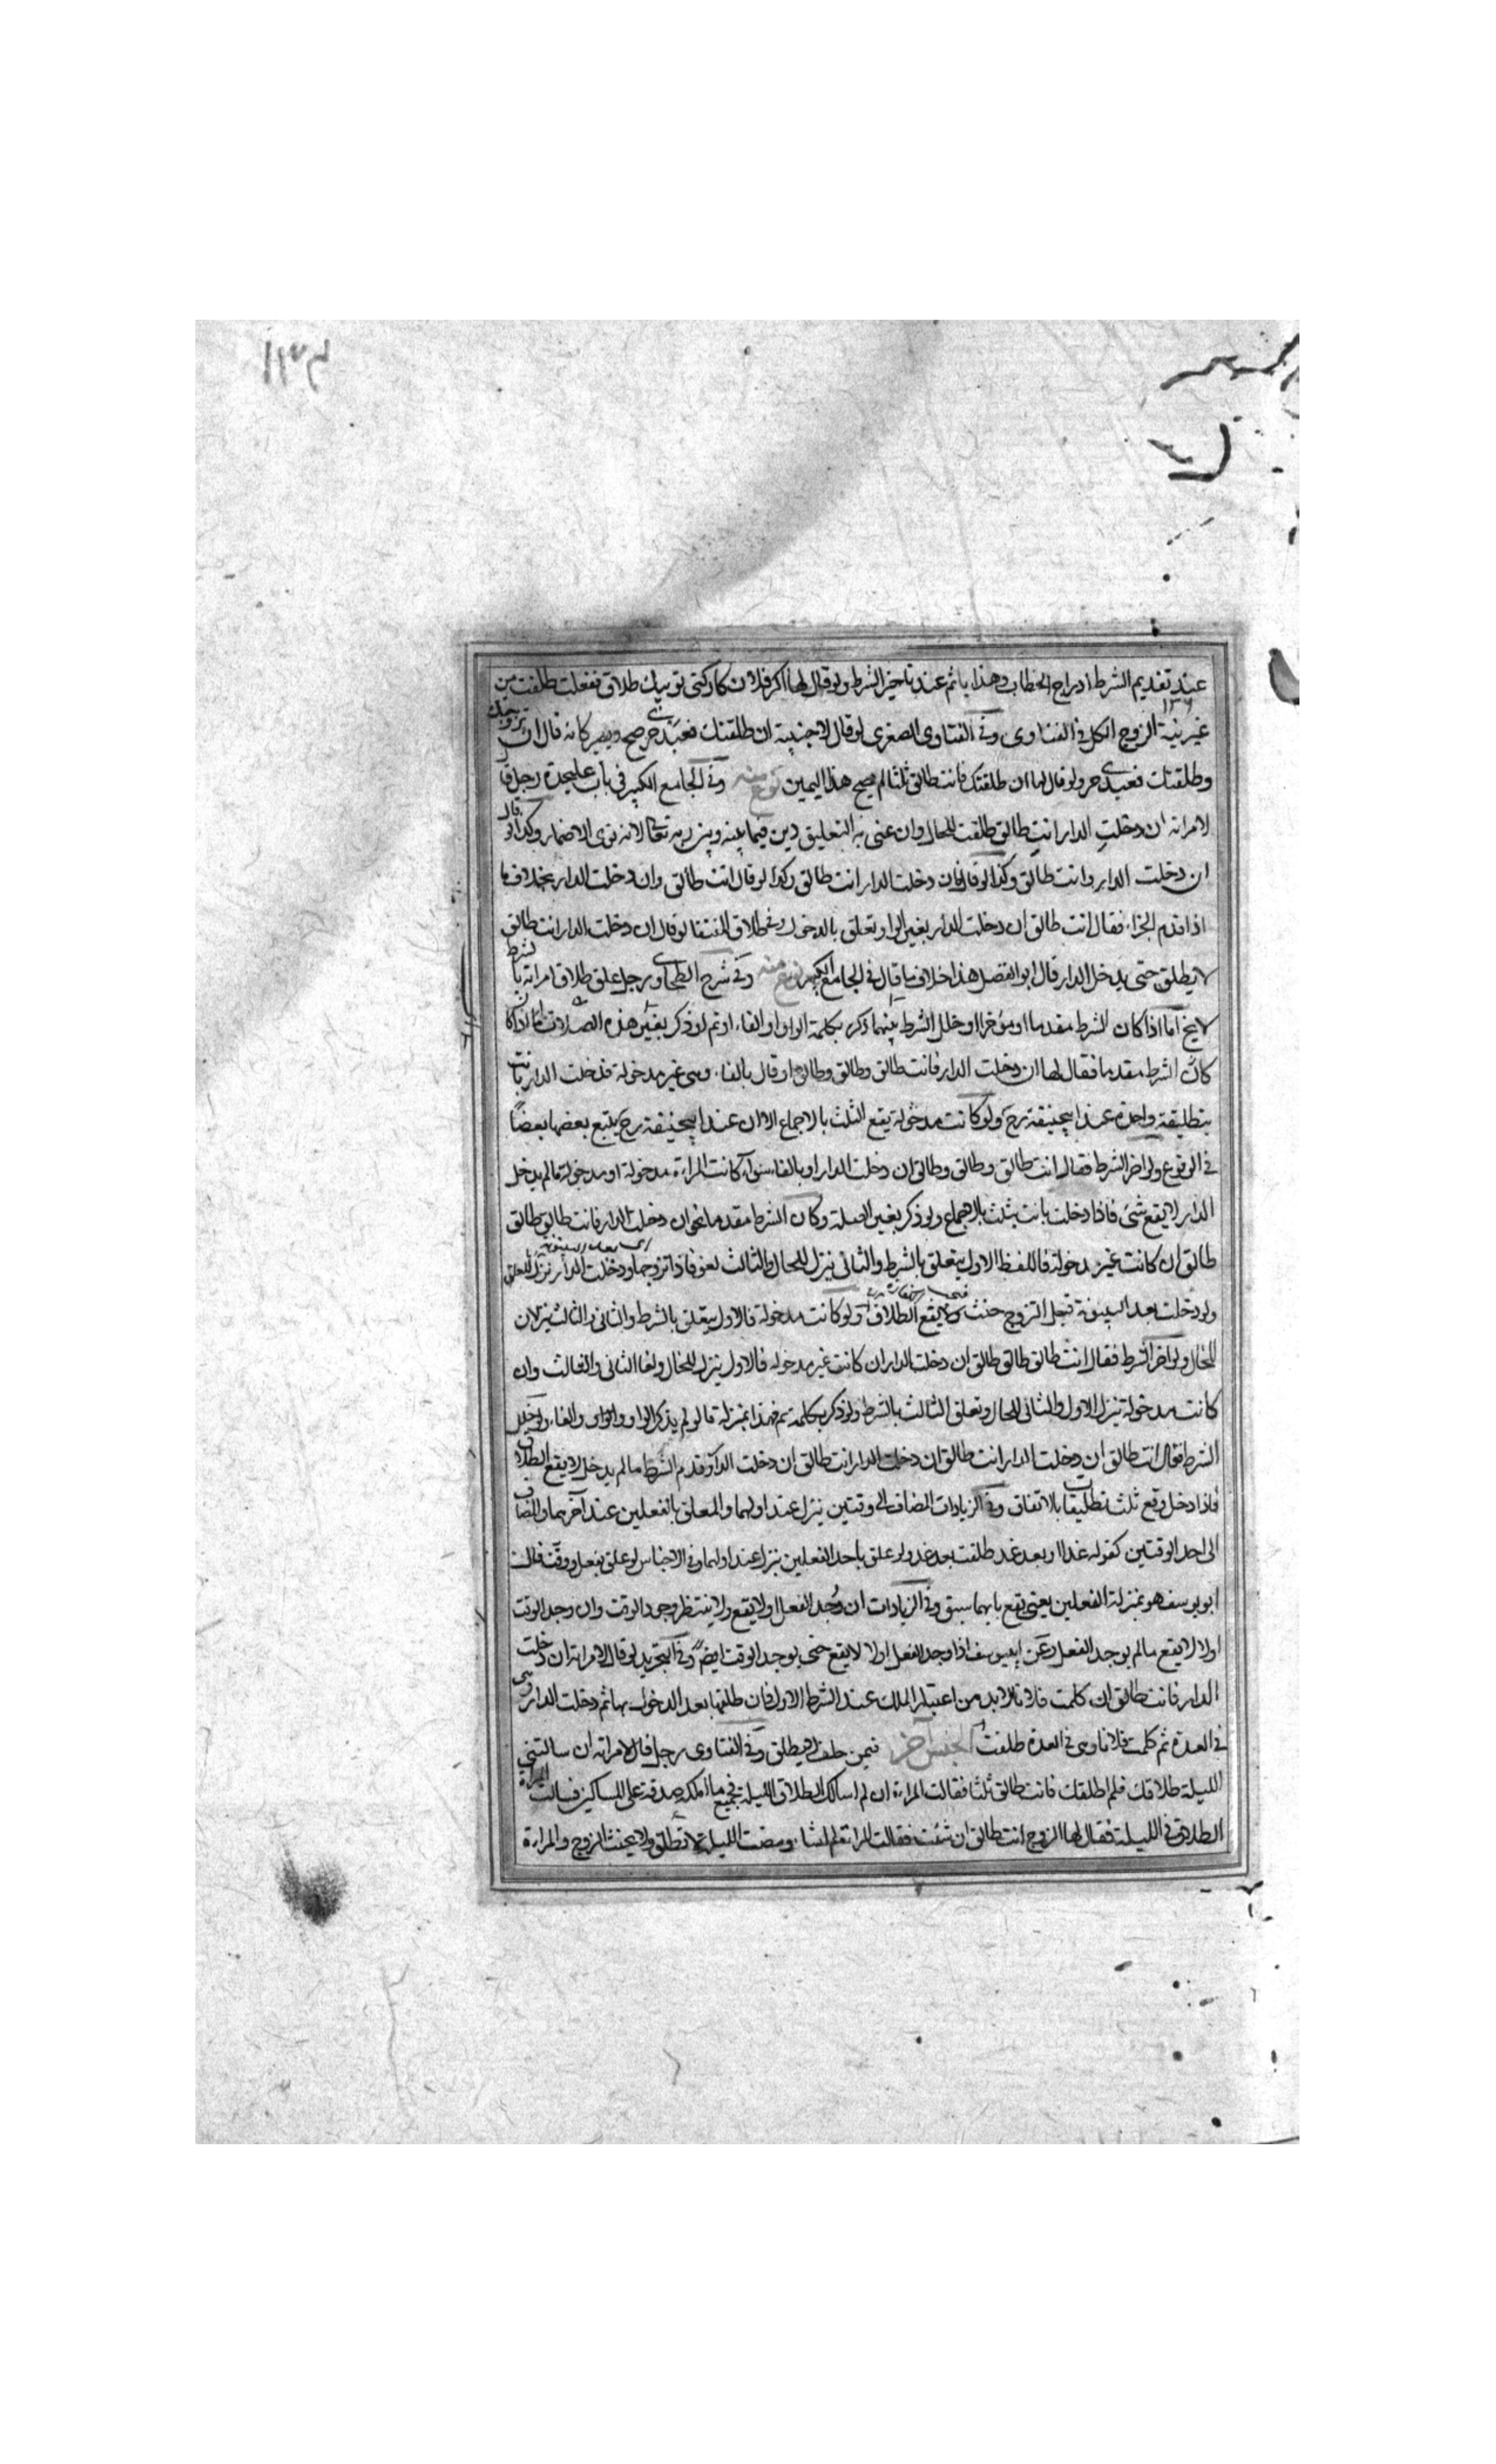 عند تقديم الشرط ادراج الخطاب وهذا ياثم عند تاخير الشرط ولو قال لها اكر فلان كار كنى تو بيك طلاق ففعلت طلقت من
غير نية الزوج الكل فى الفتاوى وفى الفتاوى الصغرى لو قال لاجنبية ان طلقتك فعبدى حر صح ويصير كانه قال ان تزوجتك
وطلقتك فعبدى حر ولو قال لها ان طلقتك فانت طالق ثلثا لم يصح هذا اليمين نوع منه وفى الجامع الكبير فى باب عليحدة رجل قال
لامراته ان دخلتِ الدار انتِ طالق طلقت للحال وان عنى به التعليق دين فيما بينه وبين ربه تعالى لانه نوى الاضمار وكذا لو قال
ان دخلت الدار وانت طالق وكذا لو قال فان دخلت الدار انت طالق وكذا لو قال انت طالق وان دخلت الدار بخلاف ما
اذا قدم الجزاء فقال انت طالق ان دخلت الدار بغير الواو تعلق بالدخول وفى طلاق المنتقا لو قال ان دخلت الدار انت طالق
لا يطلق حتى يدخل الدار قال ابو الفضل هذا خلاف ما قال فى الجامع الكبير نوع منه وفى شرح الطحاوى رجل علق طلاق امراته بالشرط
لا يخ اما اذا كان الشرط مقدما او مؤخرا او خلل الشرط بينهما ذكر بكلمة الواو او الفاء او ثم او ذكر بغير هذه الصلات اما اذا كان
كان الشرط مقدما فقال لها ان دخلت الدار فانت طالق وطالق وطالق او قال بالفاء وهى غير مدخولة فدخلت الدار بانت
بتطليقة واحدة عند ابيحنيفة رح ولو كانت مدخولة يقع الثلث بالاجماع الا ان عند ابيحنيفة رح يتبع بعضها بعضًا
فى الوقوع ولو اخر الشرط فقال انت طالق وطالق وطالق ان دخلت الدار او بالفاء سواء كانت المراءة مدخولة او مدخولة فما لم يدخل
الدار لا يقع شئ فاذا دخلت بانت بثلث بالاجماع ولو ذكر بغير الصلة وكان الشرط مقدما نحو ان دخلت الدار فانت طالق طالق
طالق ان كانت غير مدخولة فاللفظ الاول يتعلق بالشرط والثانى ينزل للحال والثالث لغو فاذا تزوجها ودخلت الدار نزل المعلق
ولو دخلت بعد البينونة قبل التزوج حنث ولا يقع الطلاق ولو كانت مدخولة فالاول يتعلق بالشرط والثانى والثالث ينزلان
للحال ولو اخر الشرط فقال انت طالق طالق طالق ان دخلت الدار ان كانت غير مدخولة فالاول ينزل للحال ولغا الثانى والثالث وان
كانت مدخولة ينزل الاول والثانى للحال وتعلق الثالث بالشرط ولو ذكر بكلمة ثم فهذا بمنزلة ما لو لم يذكر الواو والواو والفاء ولو خلل
الشرط فقال انت طالق ان دخلت الدار انت طالق ان دخلت الدار انت طالق ان دخلت الدار او قدم الشرط ما لم يدخل لا يقع الطلاق
فاذا دخل وقع ثلث تطليقات بالاتفاق وفى الزيادات المضاف الى وقتين ينزل عند اولهما والمعلق بالفعلين عند آخرهما والمضاف
الى احد الوقتين كقوله غدا او بعد غد طلقت بعد غد ولو علق باحد الفعلين ينزل عند اولهما وفى الاجناس لو علق بفعل ووقت قال
ابو يوسف هو بمنزلة الفعلين يعنى يقع بايهما سبق وفى الزيادات ان وُجد الفعل اولا يقع ولا ينتظر وجود الوقت وان وجد الوقت
اولا لا يقع ما لم يوجد الفعل وعن ابيوسف اذا وجد الفعل اولا لا يقع حتى يوجد الوقت ايضً وفى التجريد لو قال لامراته ان دخلت
الدار فانت طالق ان كلمت فلانا فلا بد من اعتبار الملك عند الشرط الاول فان طلقها بعد الدخول بها ثم دخلت الدار وهى
فى العدة ثم كلمت فلانا وهى فى العدة طلقت الجنس آخر فيمن حلف لا يطلق وفى الفتاوى رجل قال لامراته ان سالتنى
الليلة طلاقك فلم اطلقك فانت طالق ثلثا فقالت المراءة ان لم اسالك الطلاق الليلة فجميع ما املكه صدقة على المساكين فسالت المراءة
الطلاق فى الليلة فقال لها الزوج انت طالق ان شئت فقالت المراة لم اشاء ومضت الليلة لا تطلق ولا يحنث الزوج والمراءة